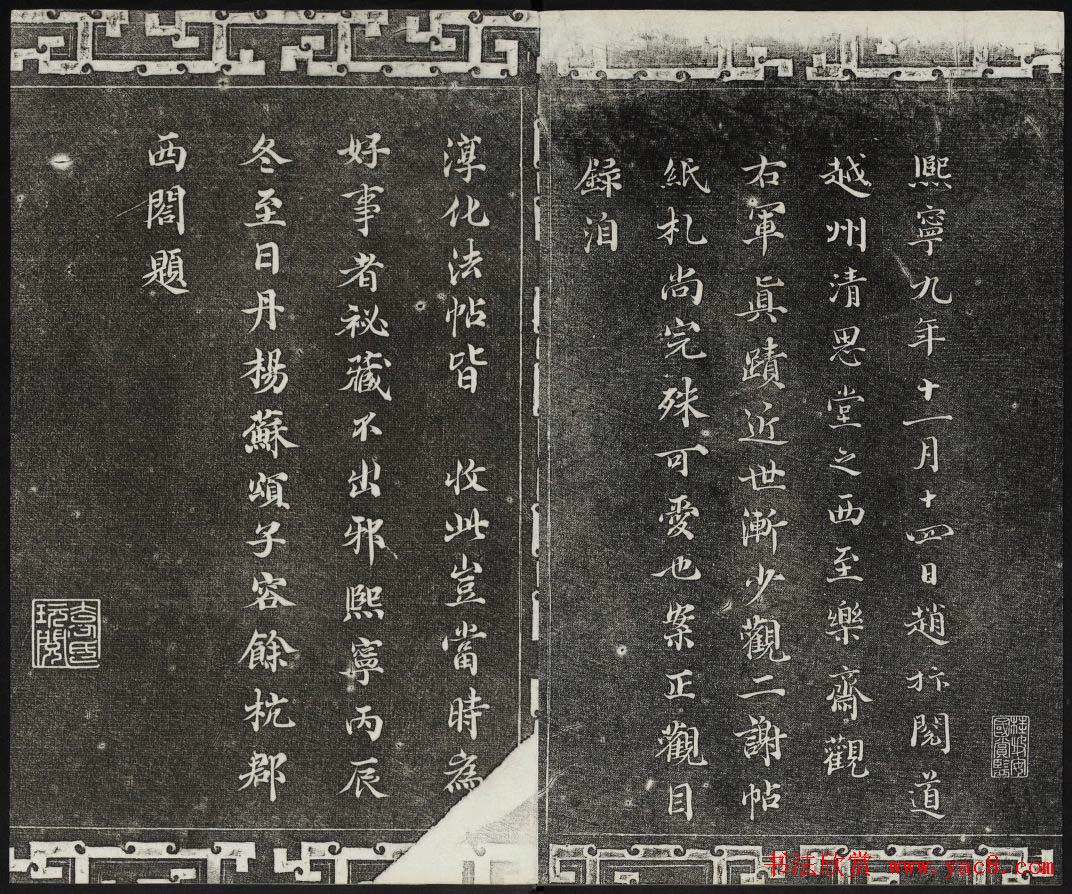 熙寧九年十一月十四日趙抃閱道
越州清思堂之西至樂齋觀
右軍眞蹟近世漸少觀二謝帖
紙札尚完殊可愛也案正觀目
録洎
淳化法帖皆 收此豈當時為
好事者祕藏不出邪熙寧丙辰
冬至日丹揚蘇頌子容餘杭郡
西閣題
书法欣赏 www.yac8.com